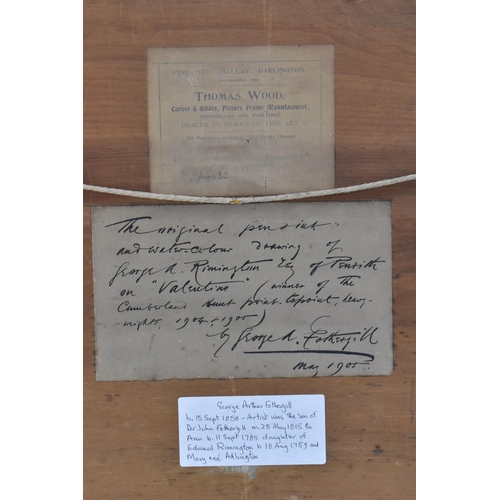 FINE ART GALLERY, DARLINGTON.
THOMAS WOOD,
Carver & Gilder, Picture Frame Manufacturer,
DEALER IN WORKS OF FINE ART
The original pen & ink
and water-colour Drawing of
George A. Rimington Esq of Penrith
on "Valentine" (winner of The
Cumberland Hunt point-to-point, heavy-
weights, 1904 & 1905)
by George A. Fothergill
May 1905.
George Arthur Fothergill
b. 15 Sept 1858 - Artist was the son of
Dr John Fothergill m. 25 May 1815 to
Ann b. 11 Sept 1785 daughter of
Edward Rimington b 18 Aug 1759 and
Mary née Adlington